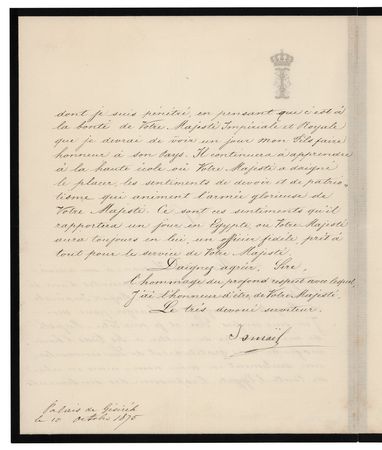 dont je suis pénétré, en pensant que c'est à
la bonté de Votre Majesté Impériale et Royale
que je devrai de voir un jour mon fils faire
honneur à son pays. Il continuera à apprendre
à la haute école où Votre Majesté a daigné
le placer, les sentiments de devoir et de patrio-
tisme qui animent l'armée glorieuse de
Votre Majesté. Ce sont ces sentiments qu'il
rapportera un jour en Egypte où Votre Majesté
aura toujours en lui, un officier fidèle prêt à
tout pour le service de Votre Majesté.
Daignez agréer, Sire,
l'hommage du profond respect avec lequel
j'ai l'honneur d'être, de Votre Majesté.
Le très dévoué serviteur.
Ismaïl
Palais de Gésireh
le 10 octobre 1875